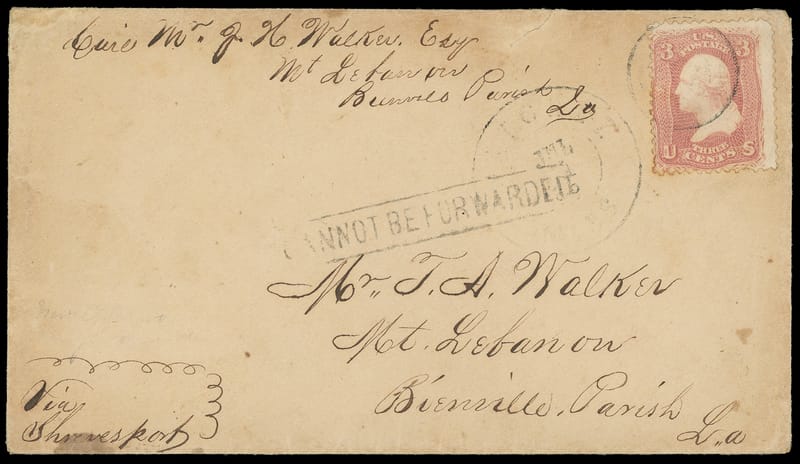 Care Mr. J. H. Walker, Esq
Mt Lebanon
Bienville Parish
La
3 U.S. 3
POSTAGE
THREE
U CENTS S
CANNOT BE FORWARDED
Mr. T. A. Walker
Mt. Lebanon
Bienville, Parish
La
Via
Shrevesport